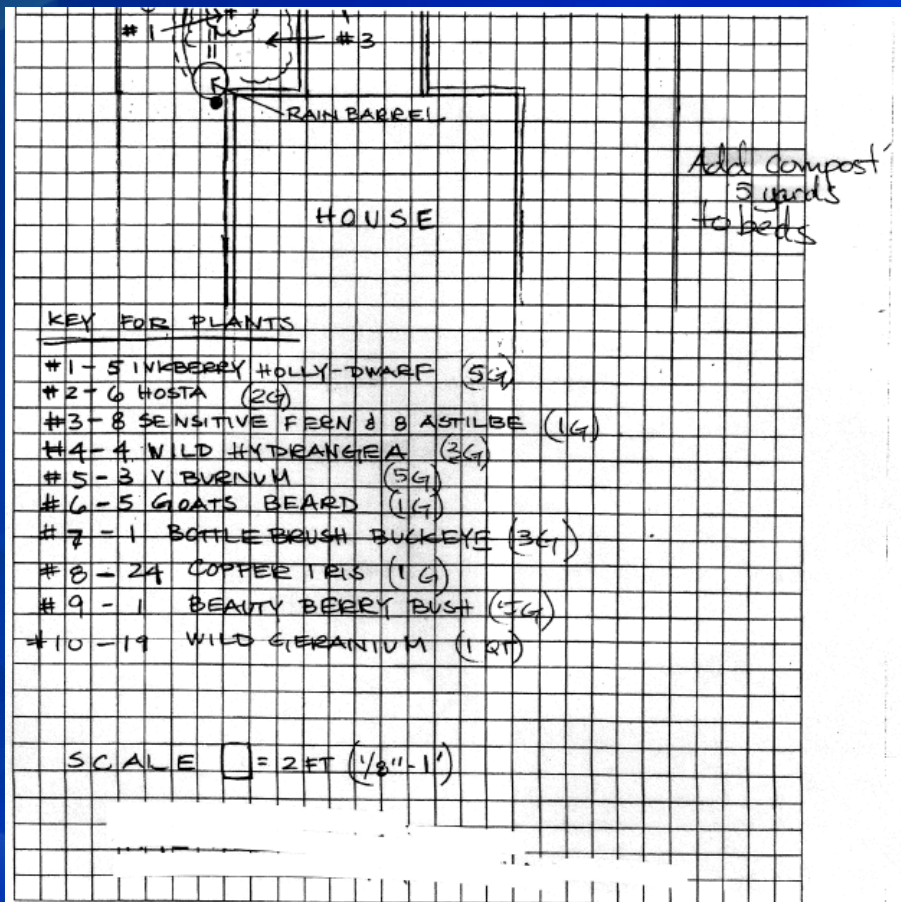 #1
#3
RAIN BARREL
Add compost
5 yards
to beds
HOUSE
KEY FOR PLANTS
#1 - 5 INKBERRY HOLLY - DWARF (5G)
#2 - 6 HOSTA (2G)
#3 - 8 SENSITIVE FERN & 8 ASTILBE (1G)
#4 - 4 WILD HYDRANGEA (3G)
#5 - 3 VIBURNUM (5G)
#6 - 5 GOATS BEARD (1G)
#7 - 1 BOTTLE BRUSH BUCKEYE (3G)
#8 - 24 COPPER IRIS (1G)
#9 - 1 BEAUTY BERRY BUSH
#10 - 19 WILD GERANIUM (1 QT)
SCALE = 2 FT (1/8" - 1')